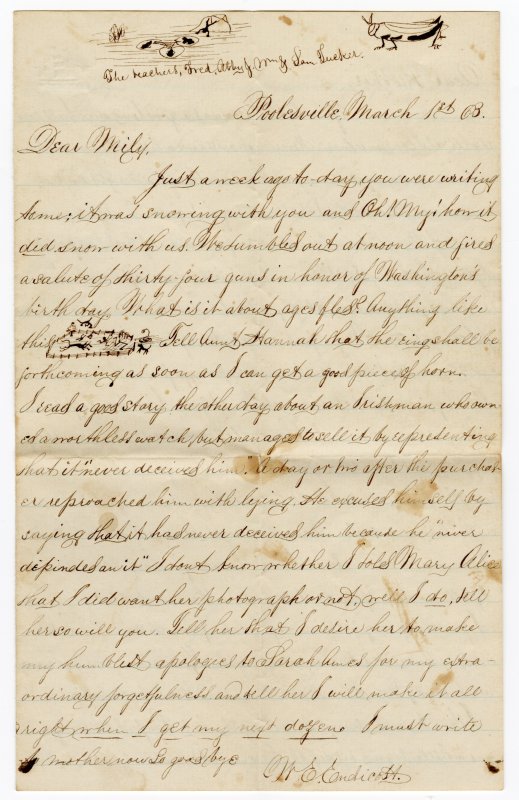 The teachers, Fred, Abby J. Wm & Sam Tucker.
Poolesville, March 1st 63.
Dear Mily,
Just a week ago to-day you were writing
to me; it was snowing with you and Oh! My! how it
did snow with us. We tumbled out at noon and fired
a salute of thirty-four guns in honor of Washington's
birth day. What is it about ages fles? Anything like
this Tell Aunt Hannah that the ring shall be
forthcoming as soon as I can get a good piece of horn.
I read a good story the other day about an Irishman who own-
ed a worthless watch, but managed to sell it, by representing
that it "never deceived him." A day or two after the purchas-
er reproached him with lying. He excused himself by
saying that it has never deceived him because he "niver
depindes an it" I dont know whether I told Mary Alice
that I did want her photograph or not, well I do, tell
her so will you. Tell her that I desire her to make
my humblest apologies to Sarah Ames for my extra-
ordinary forgetfulness and tell her I will make it all
right, when I get my next dozen. I must write
to mother now so good bye
W. E. Endicott.